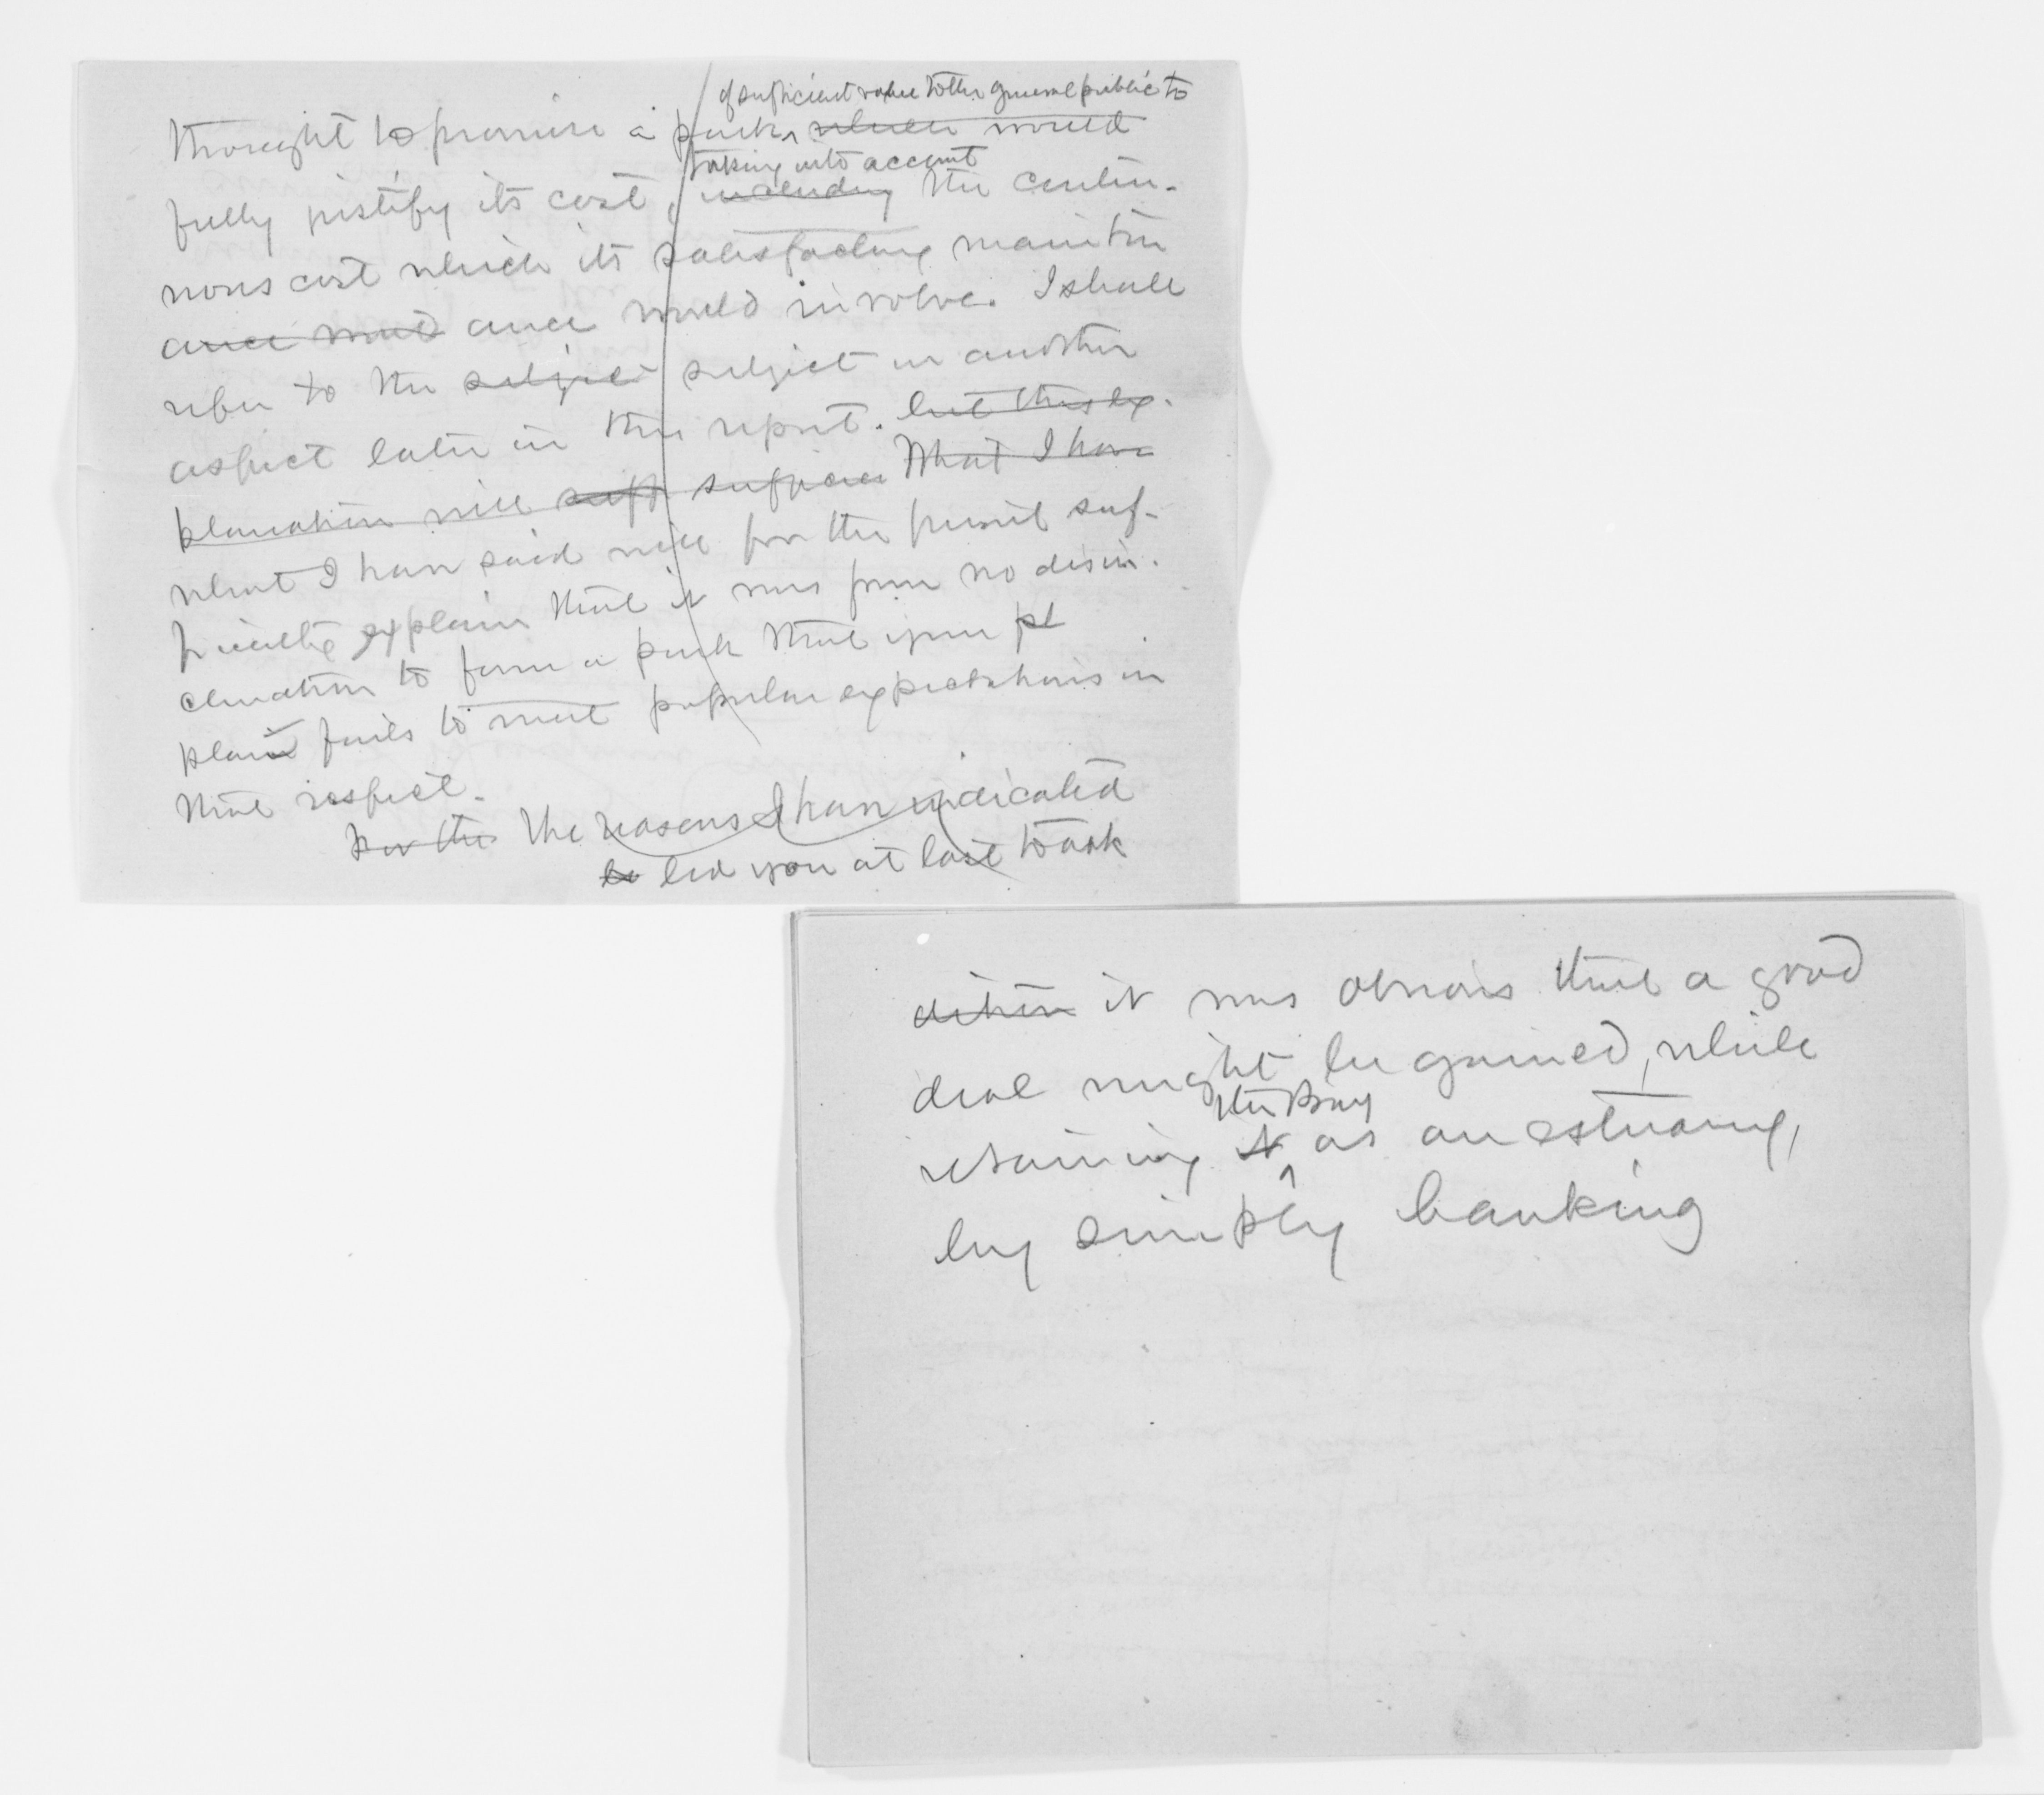 of sufficient value to the general public to
thought to promise a park, which would
taking into account
fully justify its cost, including the contin-
uous cost which its satisfactory mainten
ance would ance would involve. I shall
refer to the subject subject in another
aspect later in this report. but this ex-
planation will suff suffice What I have
what I have said will for the present suf-
ficiently explain that it was from no disin-
clination to form a park that your pl
plan fails to meet popular expectations in
that respect.
For the The reasons I have indicated
le led you at last to ask
dition it was obvious that a good
deal might be gained, while
the Bay
retaining it as an estuary,
by simply banking